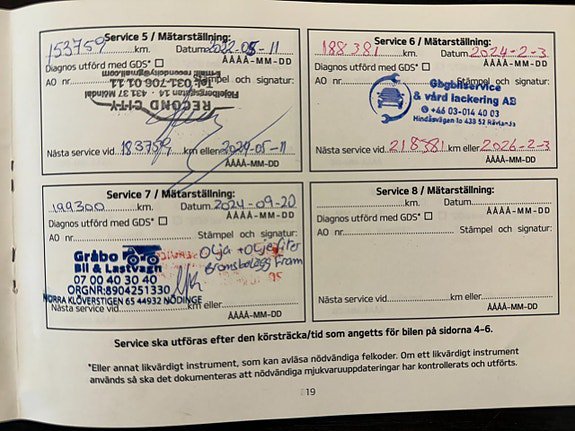 Service 5 / Mätarställning:
153759 km. Datum 2022-05-11
ÅÅÅÅ-MM-DD
Diagnos utförd med GDS*
AO nr Stämpel och signatur:
RECOND CITY
431 37 Mölndal
Tel. 031-706 01 11
Nästa service vid 183759 km eller 2024-05-11
ÅÅÅÅ-MM-DD
Service 6 / Mätarställning:
188381 km. Datum 2024-2-3
ÅÅÅÅ-MM-DD
Diagnos utförd med GDS*
AO nr. Stämpel och signatur:
Gbgbilservice
& vård lackering AB
+46 03-014 40 03
Hindåsvägen 10 438 52 Rävlanda
Nästa service vid 218381 km eller 2026-2-3
ÅÅÅÅ-MM-DD
Service 7 / Mätarställning:
199300 km. Datum 2024-09-20
ÅÅÅÅ-MM-DD
Diagnos utförd med GDS*
AO nr. Stämpel och signatur:
Gråbo
Bil & Lastvagn
07 00 40 30 40
ORGNR:8904251330
NORRA KLÖVERSTIGEN 65 44932 NÖDINGE
Olja + Oljefilter
Bromsbelägg Fram
Nästa service vid km eller
ÅÅÅÅ-MM-DD
Service 8 / Mätarställning:
km. Datum
ÅÅÅÅ-MM-DD
Diagnos utförd med GDS*
AO nr. Stämpel och signatur:
Nästa service vid km eller
ÅÅÅÅ-MM-DD
Service ska utföras efter den körsträcka/tid som angetts för bilen på sidorna 4-6.
*Eller annat likvärdigt instrument, som kan avläsa nödvändiga felkoder. Om ett likvärdigt instrument
används så ska det dokumenteras att nödvändiga mjukvaruuppdateringar har kontrollerats och utförts.
19